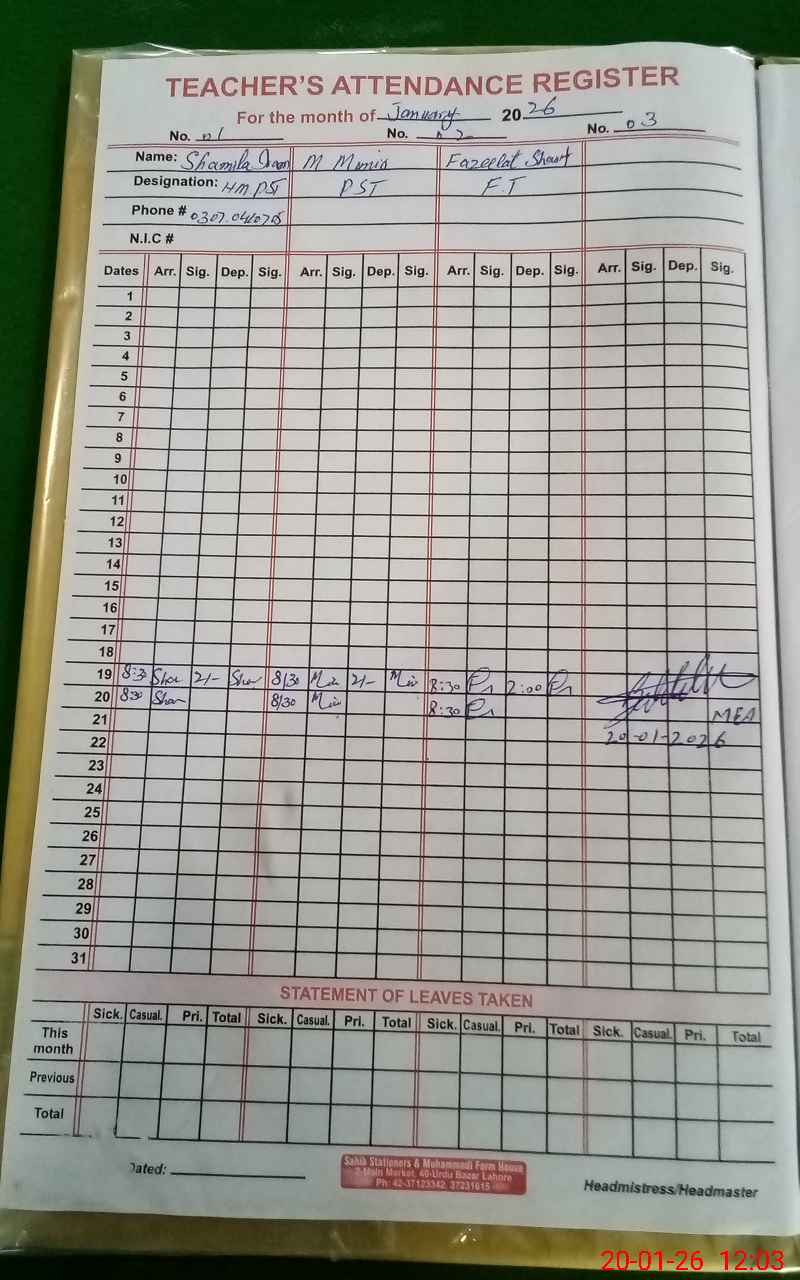 TEACHER'S ATTENDANCE REGISTER
For the month of January 2026
No. 01 No. 02 No. 03
Name: Shamila M Fazeelat
Designation: HM PST PST F.T
Phone #
N.I.C #
Dates Arr. Sig. Dep. Sig. Arr. Sig. Dep. Sig. Arr. Sig. Dep. Sig. Arr. Sig. Dep. Sig.
1
2
3
4
5
6
7
8
9
10
11
12
13
14
15
16
17
18
19 8:30 Sha 2/- Sha 8/30 2/- 8:30 2:00
20 8:30 Sha 8/30 8:30
21 MEA
22 20-01-2026
23
24
25
26
27
28
29
30
31
STATEMENT OF LEAVES TAKEN
Sick. Casual. Pri. Total Sick. Casual. Pri. Total Sick. Casual. Pri. Total Sick. Casual. Pri. Total
This month
Previous
Total
Dated:
Sahib Stationers & Muhammadi Form House
2-Main Market, 40-Urdu Bazar Lahore
Ph: 42-37123342, 37231615
Headmistress/Headmaster
20-01-26 12:03